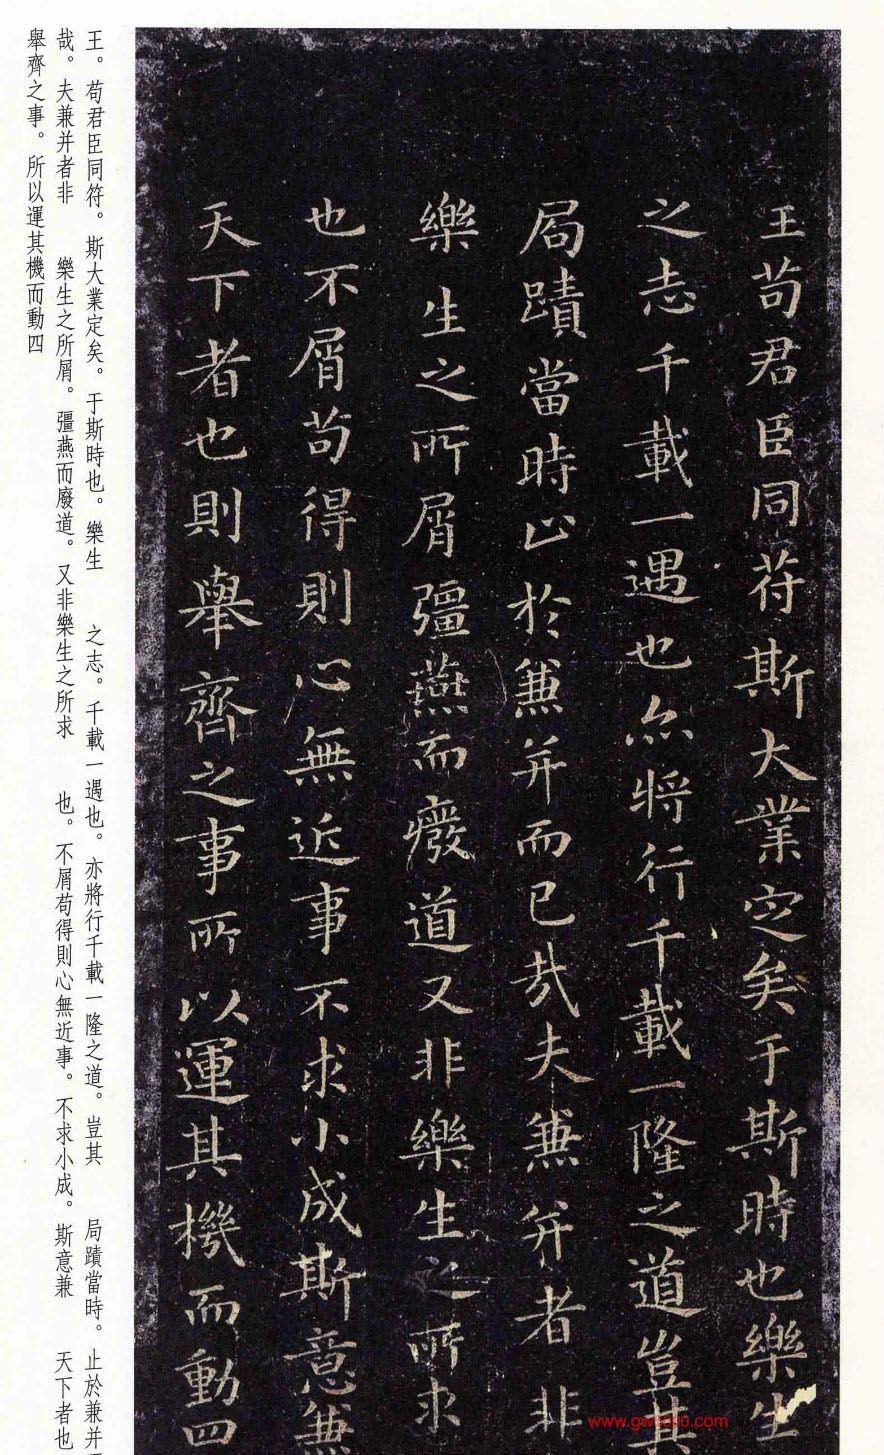 王苟君臣同苻斯大業定矣于斯時也樂生
之志千載一遇也亦将行千載一隆之道豈其
局蹟當時止於兼并而已哉夫兼并者非
樂生之所屑彊燕而癈道又非樂生之所求
也不屑苟得則心無近事不求小成斯意兼
天下者也則舉齊之事所以運其機而動四
王。苟君臣同符。斯大業定矣。于斯時也。樂生 之志。千載一遇也。亦將行千載一隆之道。豈其 局蹟當時。止於兼并
哉。夫兼并者非 樂生之所屑。彊燕而廢道。又非樂生之所求 也。不屑苟得則心無近事。不求小成。斯意兼 天下者也
舉齊之事。所以運其機而動四